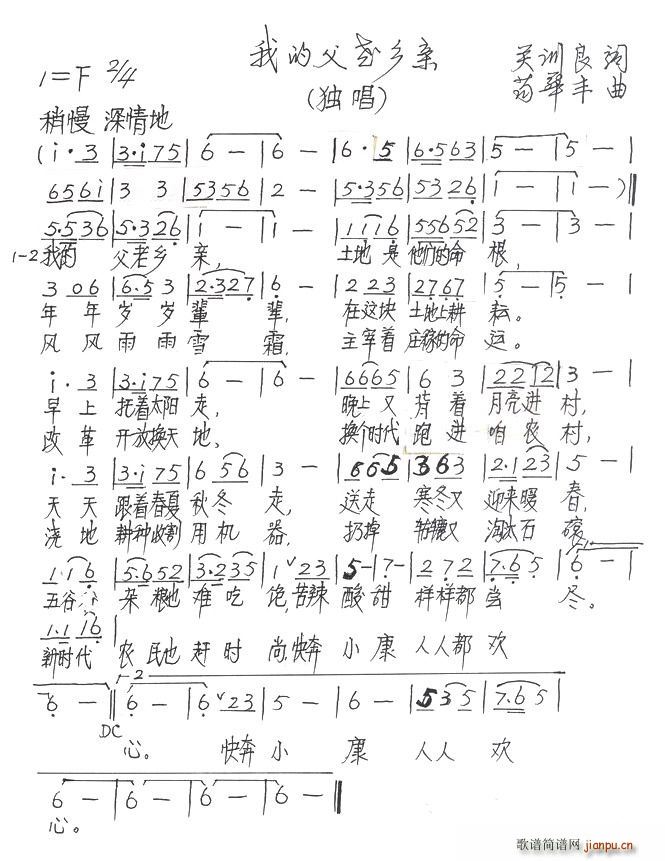 我的父老乡亲
1=F 2/4
(独唱)
关训良词
荀华丰曲
稍慢 深情地
(i·3|3·i75|6-|6-|6·5|6·563|5-|5-|
656i|33|5356|2-|5·356|5326|1-|1-)‖
5·536|5·326|1-|1-|1116|55652|3-|3-|
1-2 我的 父老乡 亲, 土地 是 他们的命 根,
3 06|6·5 3|2·327|6-|223|2767|5-|5-|
年 年 岁 岁 辈 辈, 在这块 土地上耕 耘。
风 风 雨 雨 雪 霜, 主宰着 庄稼的命 运。
i·3|3·i75|6-|6-|6665|6 3|2212|3-|
早 上 托着太阳 走, 晚上 又 背 着 月亮进 村,
改 革 开放换天 地, 换个时代 跑 进 咱 农 村,
i·3|3·i75|6 56|3-|665|363|2·123|5-|
天 天 跟着春夏 秋冬 走, 送走 寒冬又 迎来暖 春,
浇 地 耕种收割 用机 器, 扔掉 又 淘汰石 磙
1·16|5·652|3·235|1 23|5-|7-|272|7·65|6-|
五谷 杂粮也 难吃 饱,苦辣 酸 甜 样样都 当 尽。
1·1 16|
新时代 农民也 赶 时 尚,快奔 小 康 人人都 欢
6-‖6-|6 23|5-|6-|535|7·65|
1-2
DC
心。 快奔 小 康 人人 欢
6-|6-|6-|6-‖
心。
歌谱简谱网
jianpu.cn